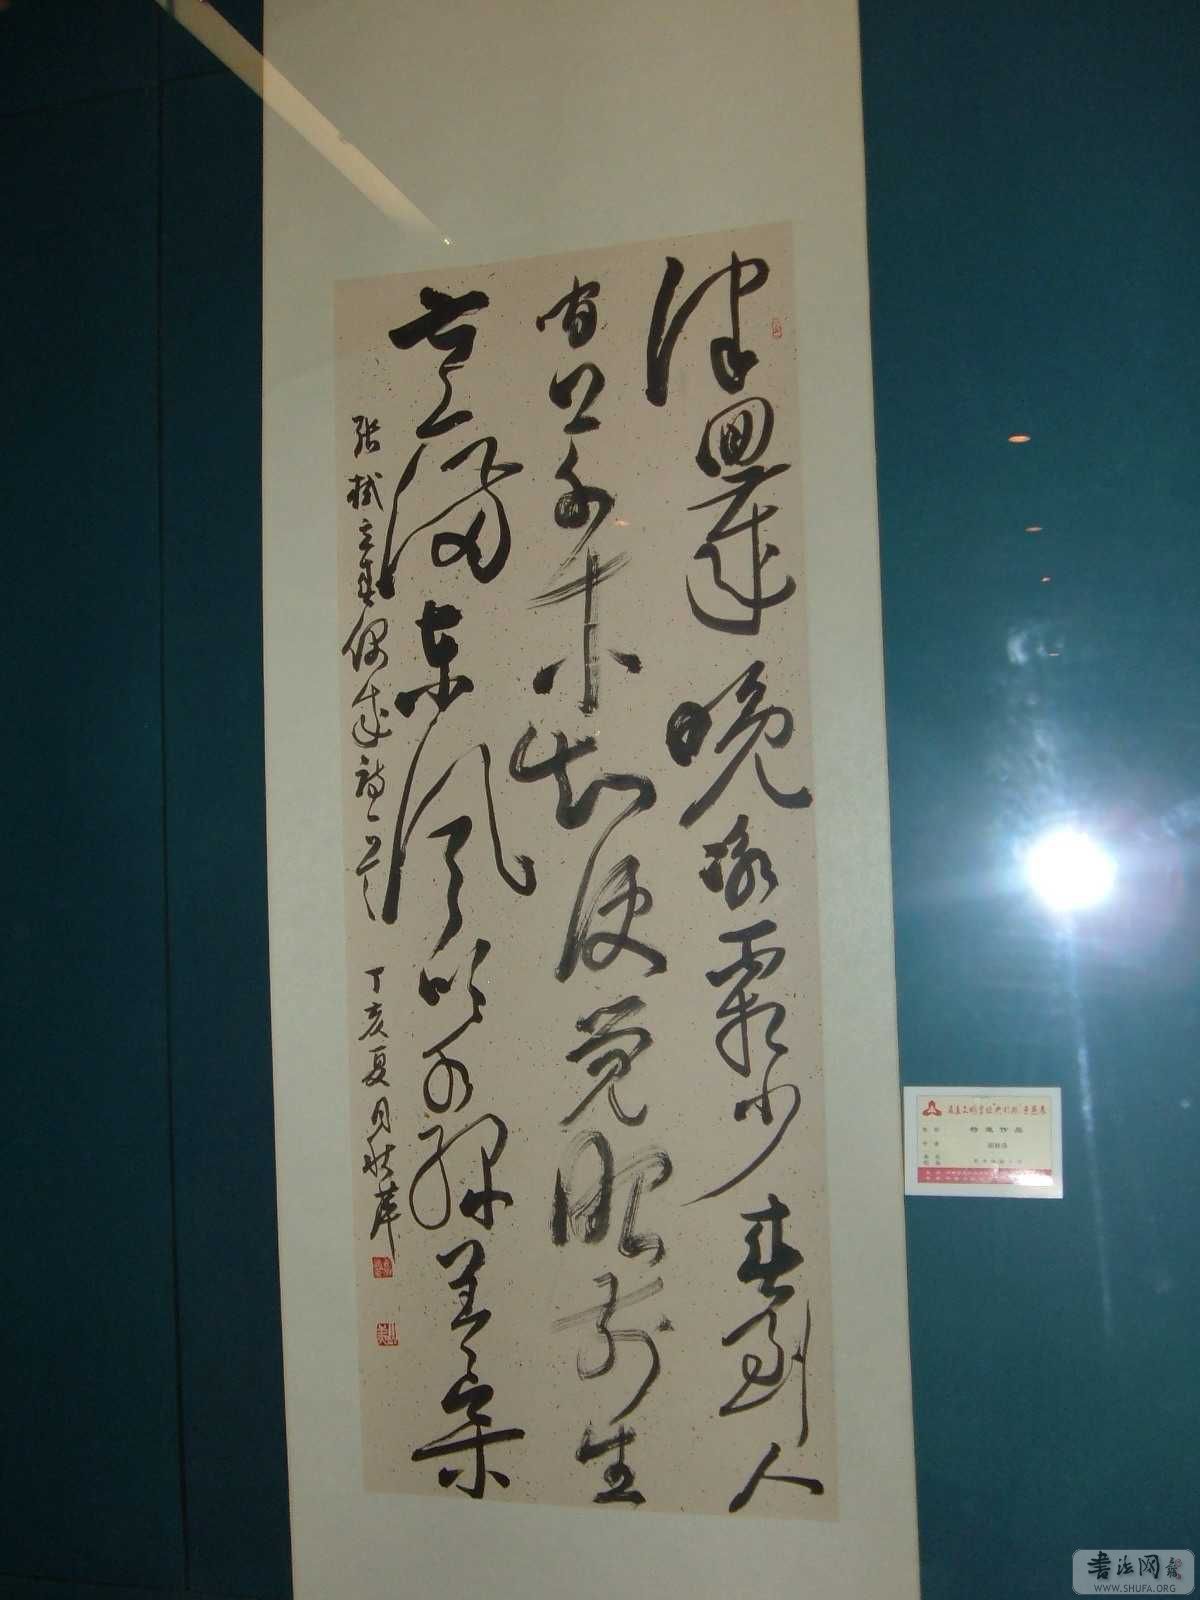 律回歲晚冰霜少春到人
间草木知便觉眼前生
意满东风吹水绿参差
张栻立春偶成诗一首 丁亥夏月秋萍
特邀作品
書法网
WWW.SHUFA.ORG